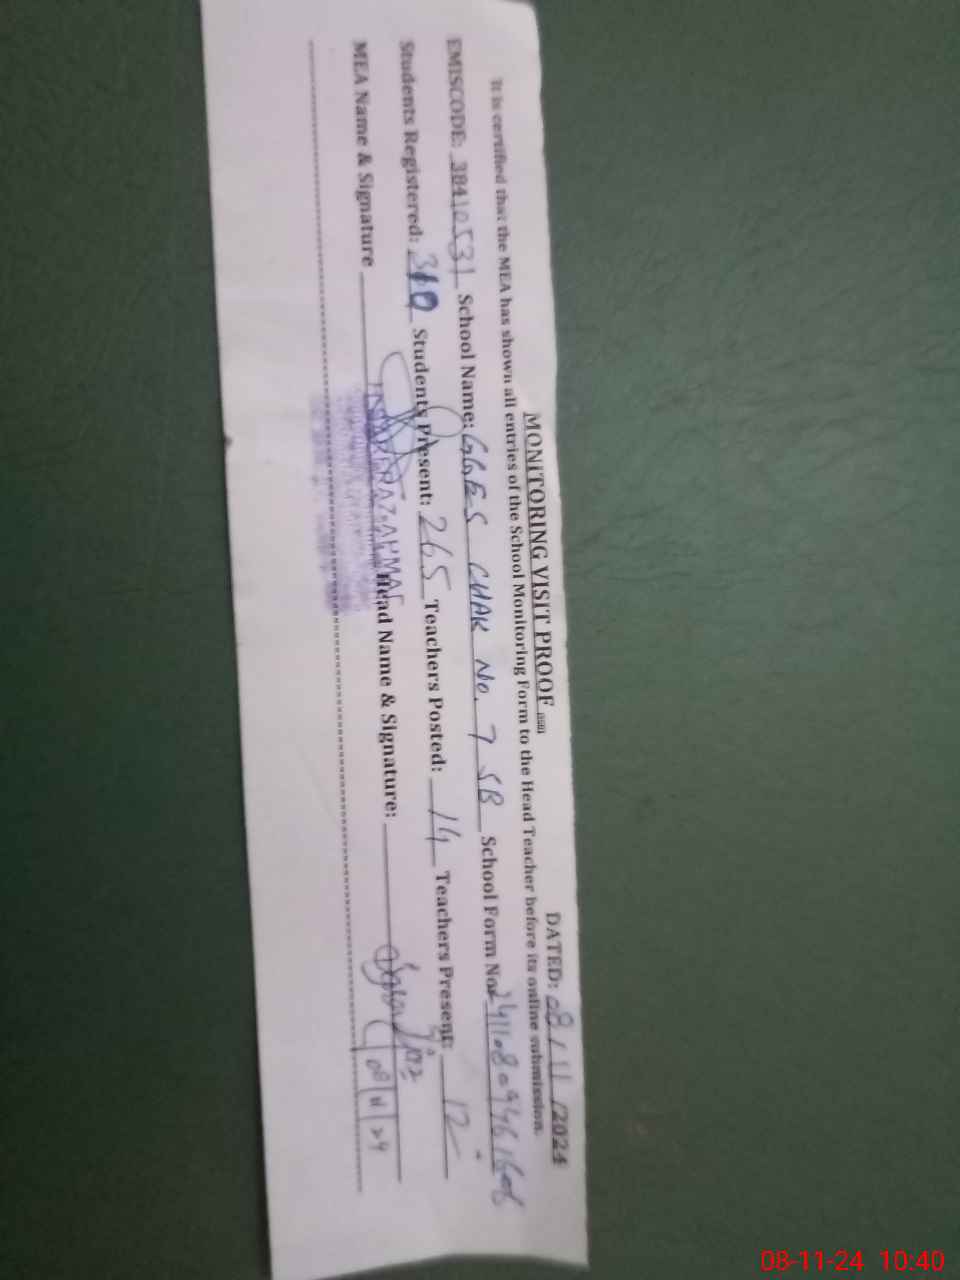 MONITORING VISIT PROOF
DATED: 08/11/2024
It is certified that the MEA has shown all entries of the School Monitoring Form to the Head Teacher before its online submission.
EMISCODE: 38410531 School Name: GGES CHAK No. 7 SB School Form No:
Students Registered: 310 Students Present: 265 Teachers Posted: 14 Teachers Present: 12
MEA Name & Signature Head Name & Signature:
AHMAD
08 11 24
08-11-24 10:40